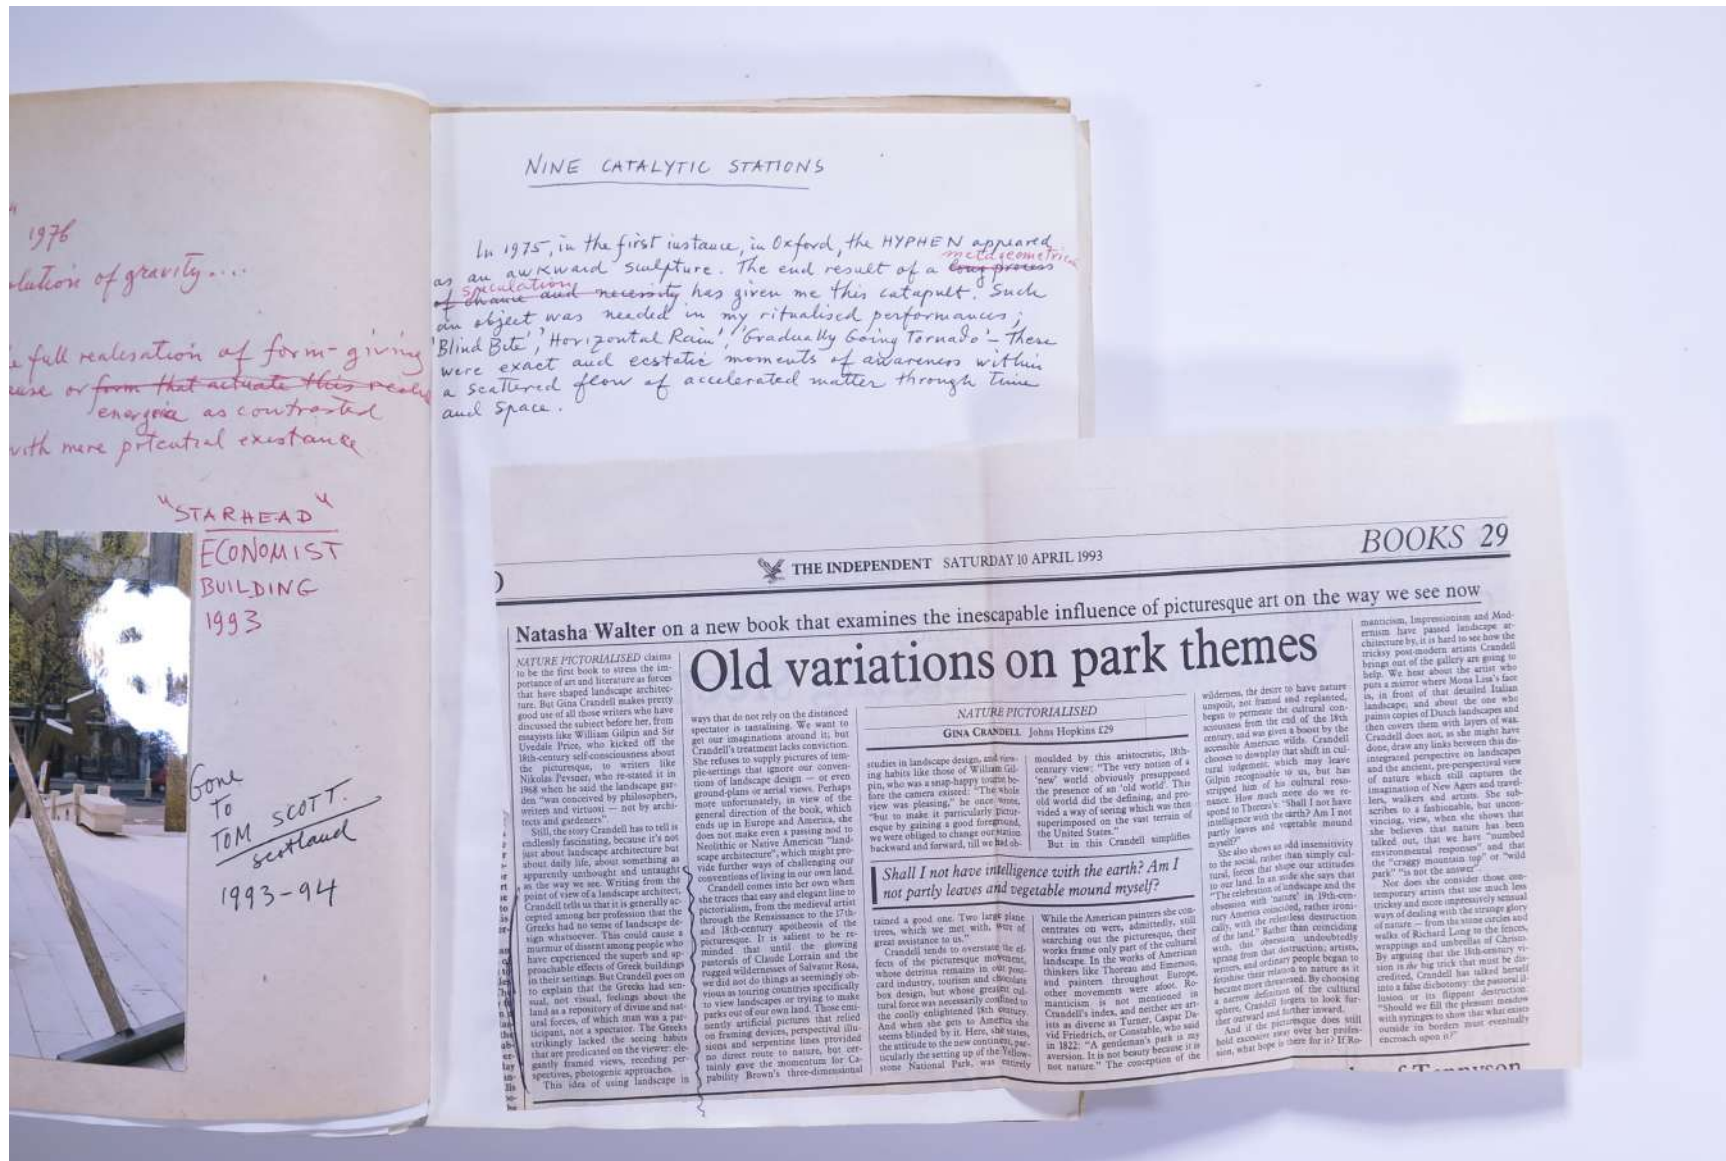 "
1976
lution of gravity....
full realisation of form-giving
use or form that actuate this
energeia as contrasted
with mere potential existance
"STARHEAD"
ECONOMIST
BUILDING
1993
Gone
TO
TOM SCOTT.
Scotland
1993-94
NINE CATALYTIC STATIONS
In 1975, in the first instance, in Oxford, the HYPHEN appeared
metageometrical
as an awkward sculpture. The end result of a long process
speculation
of chance and necessity has given me this catapult. Such
an object was needed in my ritualised performances;
'Blind Bite', 'Horizontal Rain', 'Gradually Going Tornado' – There
were exact and ecstatic moments of awareness within
a scattered flow of accelerated matter through time
and space.
THE INDEPENDENT SATURDAY 10 APRIL 1993
BOOKS 29
Natasha Walter on a new book that examines the inescapable influence of picturesque art on the way we see now
Old variations on park themes
NATURE PICTORIALISED claims
to be the first book to stress the im-
portance of art and literature as forces
that have shaped landscape architec-
ture. But Gina Crandell makes pretty
good use of all those writers who have
discussed the subject before her, from
essayists like William Gilpin and Sir
Uvedale Price, who kicked off the
18th-century self-consciousness about
the picturesque, to writers like
Nikolas Pevsner, who re-stated it in
1968 when he said the landscape gar-
den "was conceived by philosophers,
writers and virtuosi – not by archi-
tects and gardeners".
Still, the story Crandell has to tell is
endlessly fascinating, because it's not
just about landscape architecture but
about daily life, about something as
apparently unthought and untaught
as the way we see. Writing from the
point of view of a landscape architect,
Crandell tells us that it is generally ac-
cepted among her profession that the
Greeks had no sense of landscape de-
sign whatsoever. This could cause a
murmur of dissent among people who
have experienced the superb and ap-
proachable effects of Greek buildings
in their settings. But Crandell goes on
to explain that the Greeks had sen-
sual, not visual, feelings about the
land as a repository of divine and nat-
ural forces, of which man was a par-
ticipant, not a spectator. The Greeks
strikingly lacked the seeing habits
that are predicated on the viewer: ele-
gantly framed views, receding per-
spectives, photogenic approaches.
This idea of using landscape in
ways that do not rely on the distanced
spectator is tantalising. We want to
get our imaginations around it; but
Crandell's treatment lacks conviction.
She refuses to supply pictures of tem-
ple-settings that ignore our conven-
tions of landscape design — or even
ground-plans or aerial views. Perhaps
more unfortunately, in view of the
general direction of the book, which
ends up in Europe and America, she
does not make even a passing nod to
Neolithic or Native American "land-
scape architecture", which might pro-
vide further ways of challenging our
conventions of living in our own land.
Crandell comes into her own when
she traces that easy and elegant line to
pictorialism, from the medieval artist
through the Renaissance to the 17th-
and 18th-century apotheosis of the
picturesque. It is salient to be re-
minded that until the glowing
pastorals of Claude Lorrain and the
rugged wildernesses of Salvator Rosa,
we did not do things as seemingly ob-
vious as touring countries specifically
to view landscapes or trying to make
parks out of our own land. Those emi-
nently artificial pictures that relied
on framing devices, perspectival illu-
sions and serpentine lines provided
no direct route to nature, but cer-
tainly gave the momentum for Ca-
pability Brown's three-dimensional
NATURE PICTORIALISED
GINA CRANDELL Johns Hopkins £29
studies in landscape design, and view-
ing habits like those of William Gil-
pin, who was a snap-happy tourist be-
fore the camera existed: "The whole
view was pleasing," he once wrote,
"but to make it particularly pictur-
esque by gaining a good foreground,
we were obliged to change our station
backward and forward, till we had ob-
Shall I not have intelligence with the earth? Am I
not partly leaves and vegetable mound myself?
tained a good one. Two large plane
trees, which we met with, were of
great assistance to us."
Crandell tends to overstate the ef-
fects of the picturesque movement,
whose detritus remains in our post-
card industry, tourism and chocolate
box design, but whose greatest cul-
tural force was necessarily confined to
the coolly enlightened 18th century.
And when she gets to America she
seems blinded by it. Here, she states,
the attitude to the new continent, par-
ticularly the setting up of the Yellow-
stone National Park, was entirely
moulded by this aristocratic, 18th-
century view: "The very notion of a
'new' world obviously presupposed
the presence of an 'old world'. This
old world did the defining, and pro-
vided a way of seeing which was then
superimposed on the vast terrain of
the United States."
But in this Crandell simplifies.
While the American painters she con-
centrates on were, admittedly, still
searching out the picturesque, their
works frame only part of the cultural
landscape. In the works of American
thinkers like Thoreau and Emerson,
and painters throughout Europe,
other movements were afoot. Ro-
manticism is not mentioned in
Crandell's index, and neither are art-
ists as diverse as Turner, Caspar Da-
vid Friedrich, or Constable, who said
in 1822: "A gentleman's park is my
aversion. It is not beauty because it is
not nature." The conception of the
wilderness, the desire to have nature
unspoilt, not framed and replanted,
began to permeate the cultural con-
sciousness from the end of the 18th
century, and was given a boost by the
accessible American wilds. Crandell
chooses to downplay that shift in cul-
tural judgement, which may leave
Gilpin recognisable to us, but has
stripped him of his cultural reso-
nance. How much more do we re-
spond to Thoreau's "Shall I not have
intelligence with the earth? Am I not
partly leaves and vegetable mound
myself?"
She also shows an odd insensitivity
to the social, rather than simply cul-
tural, forces that shape our attitudes
to our land. In an aside she says that
"The celebration of landscape and the
obsession with 'nature' in 19th-cen-
tury America coincided, rather ironi-
cally, with the relentless destruction
of the land." Rather than coinciding
with, this obsession undoubtedly
sprang from that destruction; artists,
writers, and ordinary people began to
fetishise their relation to nature as it
became more threatened. By choosing
a narrow definition of the cultural
sphere, Crandell forgets to look fur-
ther outward and further inward.
And if the picturesque does still
hold excessive sway over her profes-
sion, what hope is there for it? If Ro-
manticism, Impressionism and Mod-
ernism have passed landscape ar-
chitecture by, it is hard to see how the
tricksy post-modern artists Crandell
brings out of the gallery are going to
help. We hear about the artist who
puts a mirror where Mona Lisa's face
is, in front of that detailed Italian
landscape; and about the one who
paints copies of Dutch landscapes and
then covers them with layers of wax.
Crandell does not, as she might have
done, draw any links between this dis-
integrated perspective on landscapes
and the ancient, pre-perspectival view
of nature which still captures the
imagination of New Agers and travel-
lers, walkers and artists. She sub-
scribes to a fashionable, but uncon-
vincing, view, when she shows that
she believes that nature has been
talked out, that we have "numbed
environmental responses" and that
the "craggy mountain top" or "wild
park" "is not the answer".
Nor does she consider those con-
temporary artists that use much less
tricksy and more impressively sensual
ways of dealing with the strange glory
of nature — from the stone circles and
walks of Richard Long to the fences,
wrappings and umbrellas of Christo.
By arguing that the 18th-century vi-
sion is the big trick that must be dis-
credited, Crandell has talked herself
into a false dichotomy: the pastoral il-
lusion or its flippant destruction.
"Should we fill the pleasant meadow
with syringes to show that what exists
outside in borders must eventually
encroach upon it?"
f Tennyson